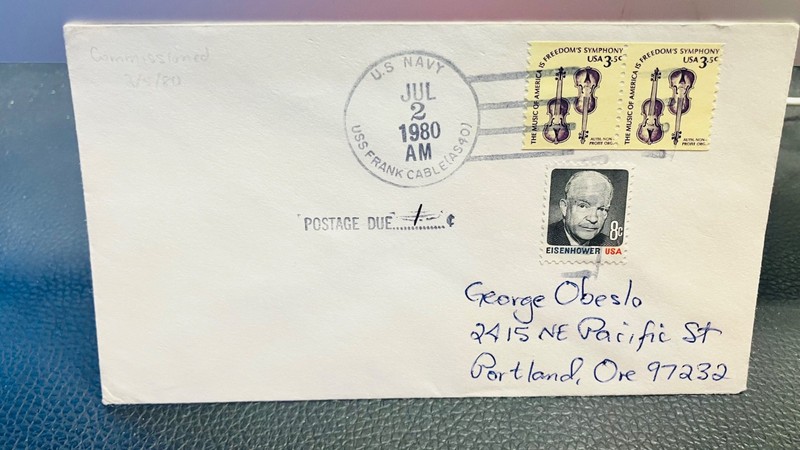 Commissioned
U.S NAVY
JUL
2
1980
AM
USS FRANK CABLE (AS40)
THE MUSIC OF AMERICA IS FREEDOM'S SYMPHONY
USA 3.5¢
AUTH. NON-
PROFIT ORG.
THE MUSIC OF AMERICA IS FREEDOM'S SYMPHONY
USA 3.5¢
AUTH. NON-
PROFIT ORG.
POSTAGE DUE 1 ¢
8c
EISENHOWER USA
George Obeslo
2415 NE Pacific St
Portland, Ore 97232